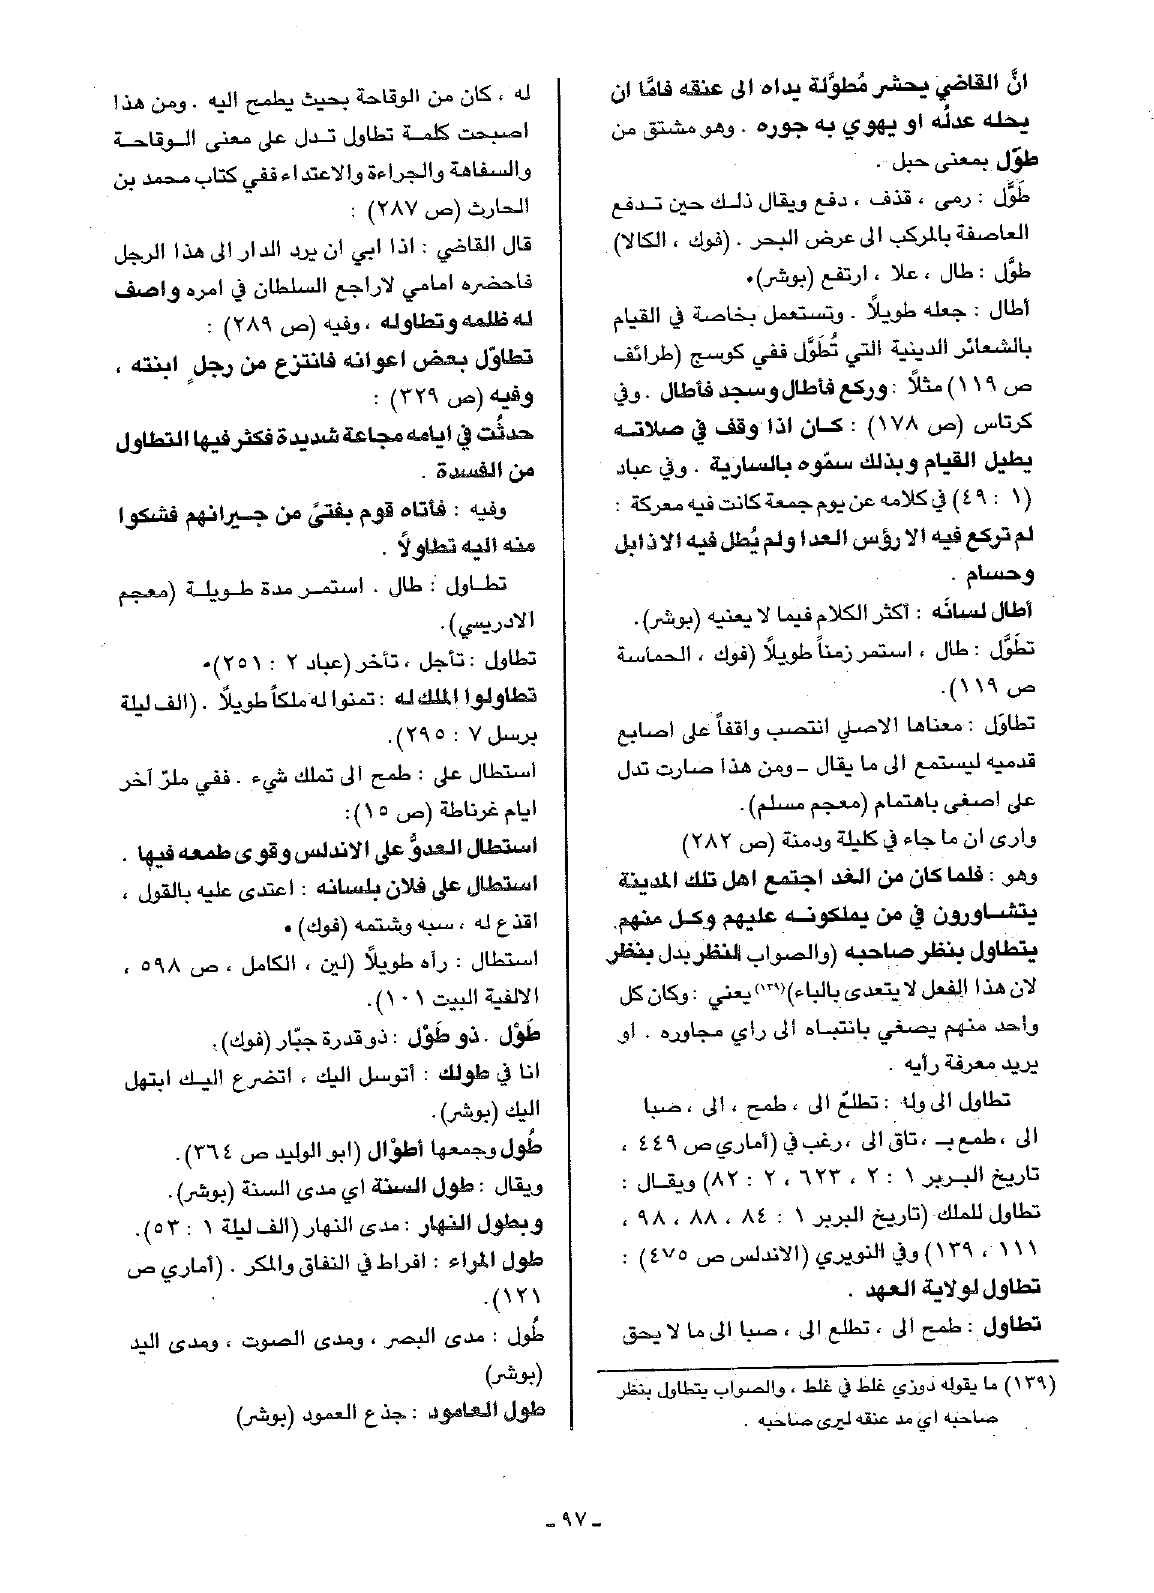 انَّ القاضي يحشر مُطوَّلة يداه الى عنقه فامَّا ان
يحله عدلُه او يهوي به جوره . وهو مشتق من
طوّل بمعنى حبل .
طَوَّل : رمى ، قذف ، دفع ويقال ذلك حين تدفع
العاصفة بالمركب الى عرض البحر . (فوك ، الكالا)
طوَّل : طال ، علا ، ارتفع (بوشر).
أطال : جعله طويلاً . وتستعمل بخاصة في القيام
بالشعائر الدينية التي تُطَوَّل ففي كوسج (طرائف
ص ١١٩) مثلاً : وركع فأطال وسجد فأطال . وفي
كرتاس (ص ١٧٨) : كان اذا وقف في صلاته
يطيل القيام وبذلك سمّوه بالسارية . وفي عباد
(١ : ٤٩) في كلامه عن يوم جمعة كانت فيه معركة :
لم تركع فيه الا رؤس العدا ولم يُطل فيه الا ذابل
وحسام .
أطال لسانَه : أكثر الكلام فيما لا يعنيه (بوشر).
تطَوَّل : طال ، استمر زمناً طويلاً (فوك ، الحماسة
ص ١١٩).
تطاوَل : معناها الاصلي انتصب واقفاً على اصابع
قدميه ليستمع الى ما يقال ــ ومن هذا صارت تدل
على أصغى باهتمام (معجم مسلم).
وارى ان ما جاء في كليلة ودمنة (ص ٢٨٢)
وهو : فلما كان من الغد اجتمع اهل تلك المدينة
يتشاورون في من يملكونه عليهم وكل منهم
يتطاول بنظر صاحبه (والصواب النظر بدل بنظر
لان هذا الفعل لا يتعدى بالباء)(١٣٩) يعني : وكان كل
واحد منهم يصغي بانتباه الى راي مجاوره . او
يريد معرفة رأيه .
تطاول الى وله : تطلّع الى ، طمح ، الى ، صبا
الى ، طمع بـ ، تاق الى ، رغب في (أماري ص ٤٤٩ ،
تاريخ البربر ١ : ٢ ، ٦٢٣ ، ٢ : ٨٢) ويقال :
تطاول للملك (تاريخ البربر ١ : ٨٤ ، ٨٨ ، ٩٨ ،
١١١ ، ١٣٩) وفي النويري (الاندلس ص ٤٧٥) :
تطاول لولاية العهد .
تطاول : طمح الى ، تطلع الى ، صبا الى ما لا يحق
(١٣٩) ما يقوله دوزي غلط في غلط ، والصواب يتطاول بنظر
صاحبه اي مد عنقه ليرى صاحبه .
له ، كان من الوقاحة بحيث يطمح اليه . ومن هذا
اصبحت كلمة تطاول تدل على معنى الوقاحة
والسفاهة والجراءة والاعتداء ففي كتاب محمد بن
الحارث (ص ٢٨٧) :
قال القاضي : اذا ابي ان يرد الدار الى هذا الرجل
فاحضره امامي لاراجع السلطان في امره واصف
له ظلمه وتطاوله ، وفيه (ص ٢٨٩) :
تطاوّل بعض اعوانه فانتزع من رجلٍ ابنته ،
وفيه (ص ٣٢٩) :
حدثُت في ايامه مجاعة شديدة فكثر فيها التطاول
من الفسدة .
وفيه : فأتاه قوم بفتىً من جيرانهم فشكوا
منه اليه تطاولاً .
تطاول : طال . استمر مدة طويلة (معجم
الادريسي).
تطاول : تأجل ، تأخر (عباد ٢ : ٢٥١).
تطاولوا الملك له : تمنوا له ملكاً طويلاً . (الف ليلة
برسل ٧ : ٢٩٥).
أستطال على : طمح الى تملك شيء . ففي ملرّ آخر
ايام غرناطة (ص ١٥):
استطال العدوُّ على الاندلس وقوى طمعه فيها .
استطال على فلان بلسانه : اعتدى عليه بالقول ،
اقذع له ، سبه وشتمه (فوك) .
استطال : رآه طويلاً (لين ، الكامل ، ص ٥٩٨ ،
الالفية البيت ١٠١).
طَوْل . ذو طَوْل : ذو قدرة جبّار (فوك).
انا في طولك : أتوسل اليك ، اتضرع اليك ابتهل
اليك (بوشر).
طُول وجمعها أطوْال (ابو الوليد ص ٣٦٤).
ويقال : طول السنة اي مدى السنة (بوشر).
وبطول النهار : مدى النهار (الف ليلة ١ : ٥٣).
طول المراء : افراط في النفاق والمكر . (أماري ص
١٢١).
طُول : مدى البصر ، ومدى الصوت ، ومدى اليد
(بوشر)
طول العامود : جذع العمود (بوشر)
ــ ٩٧ ــ